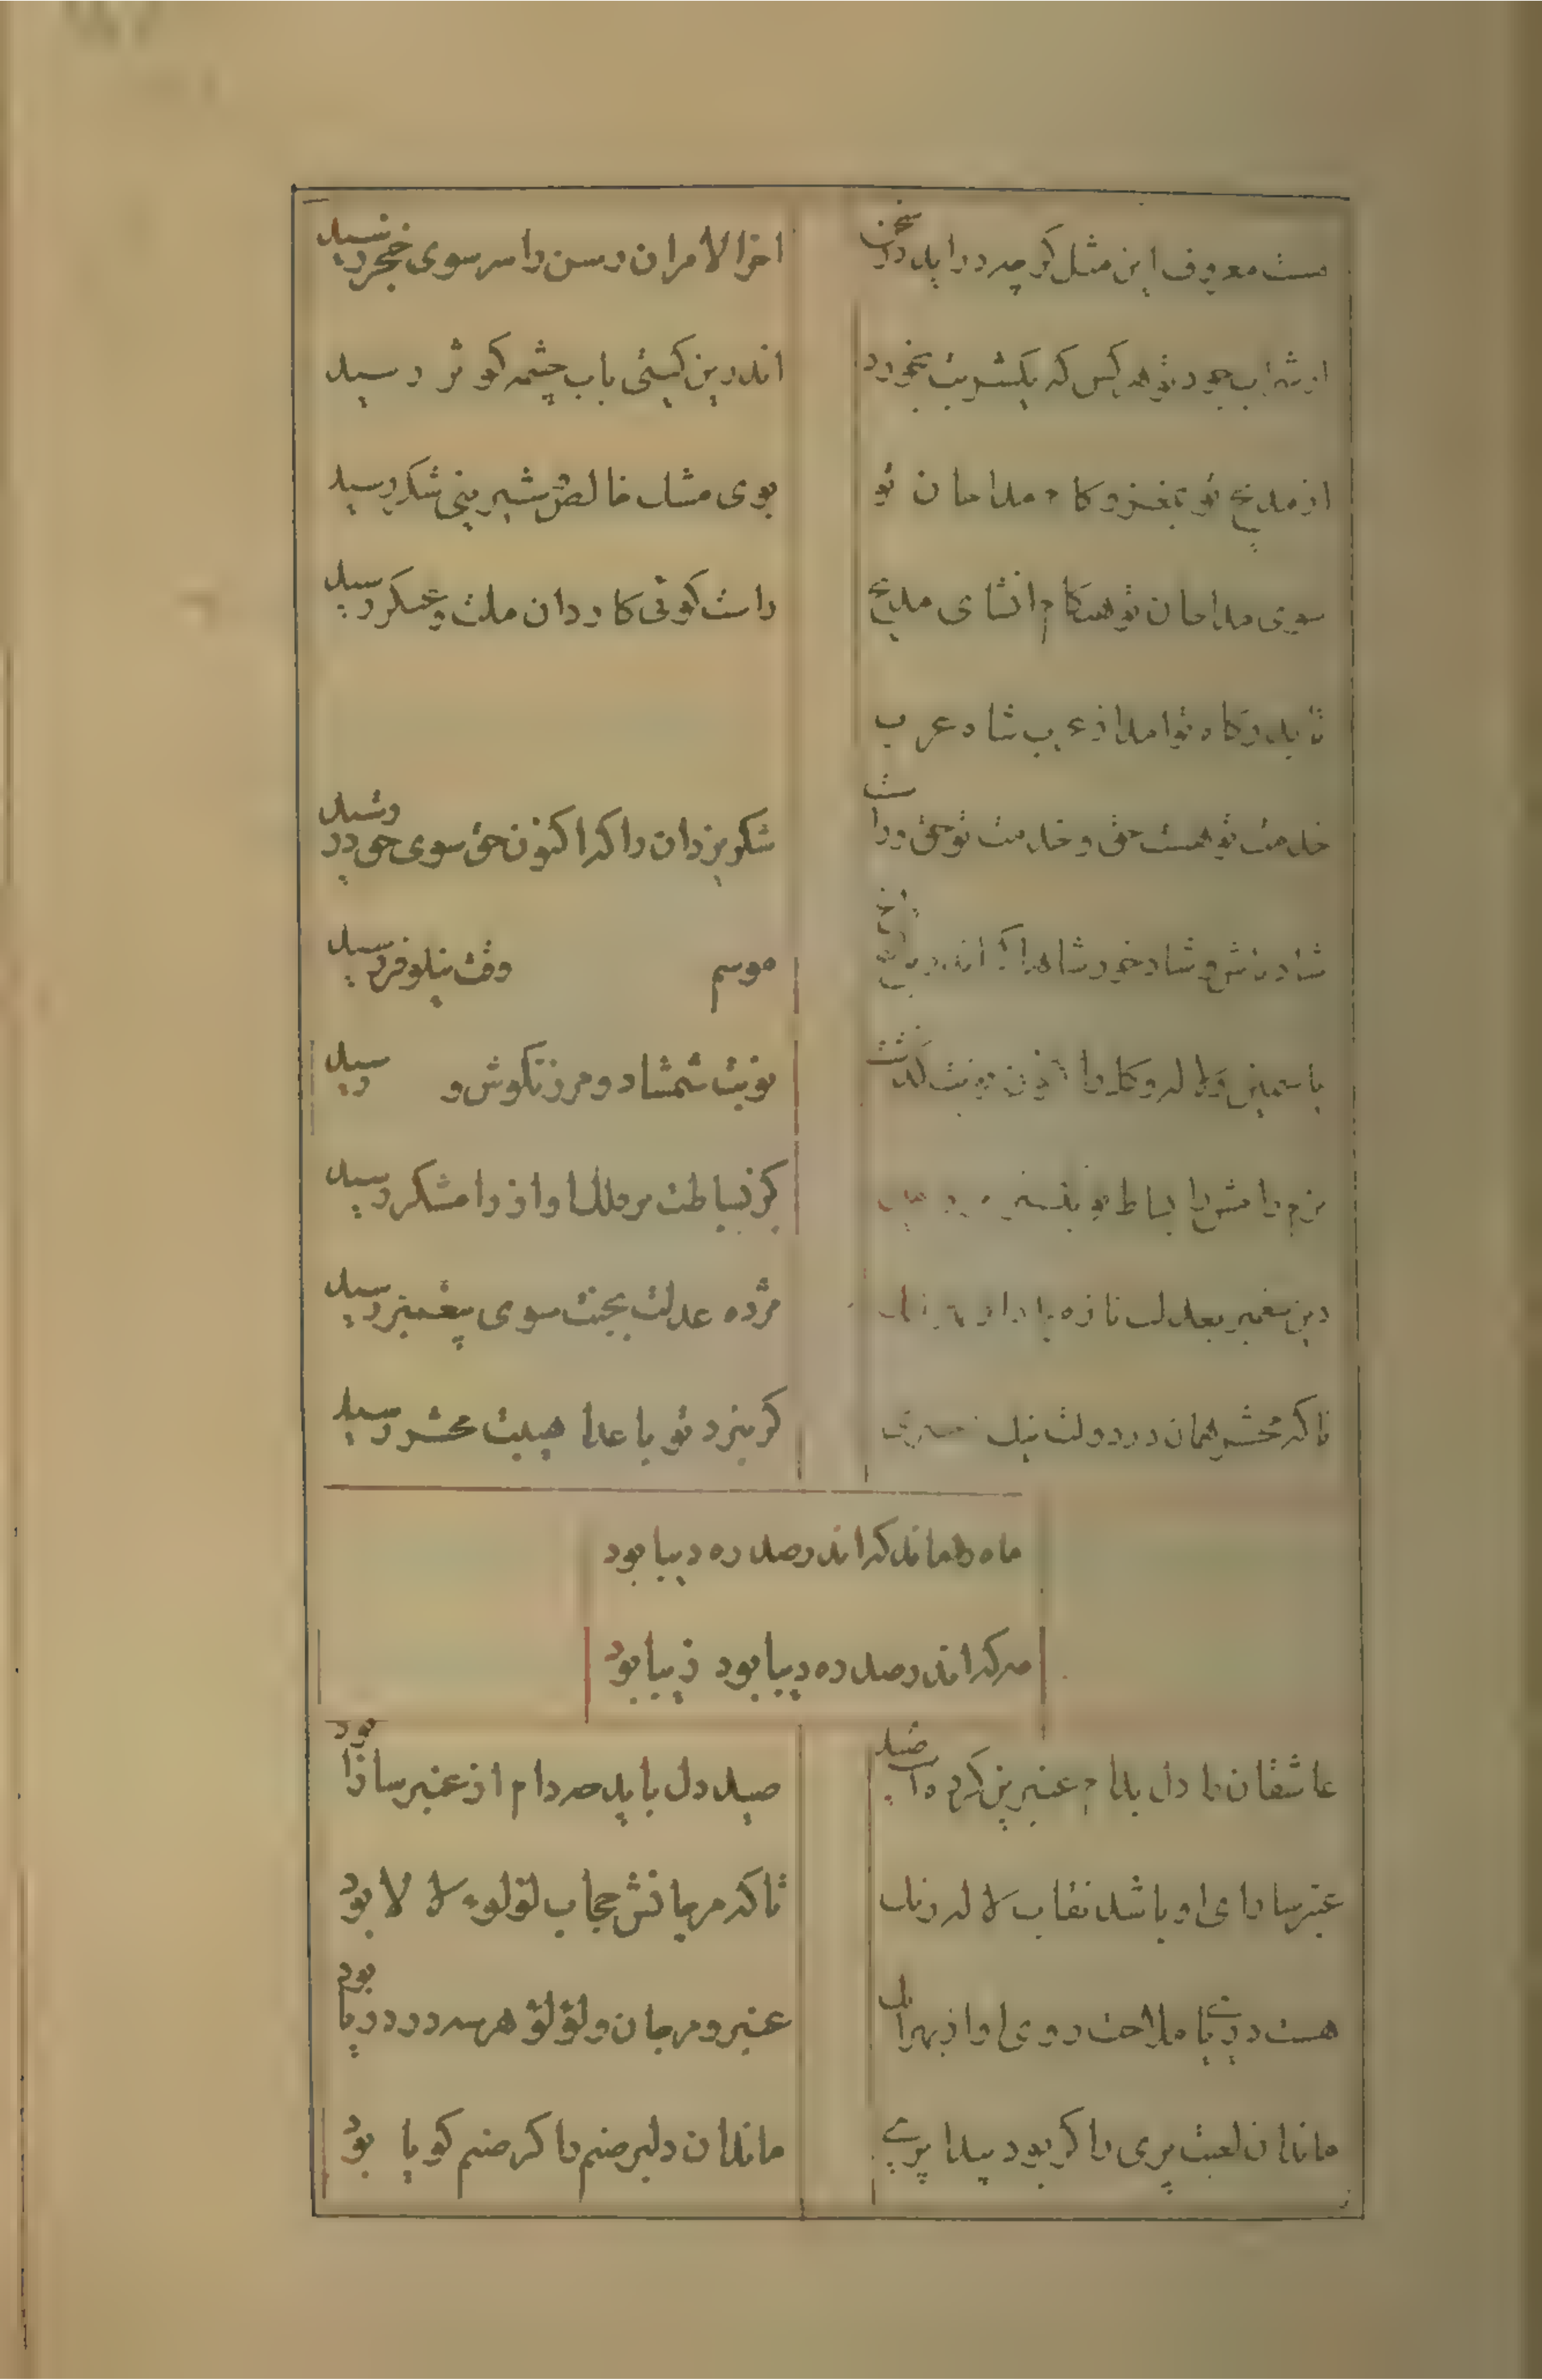 هست معروف این مثل کرچه درراید رسن
اخرالامر ان رسن را سر سوی چنبر رسید
از شراب جود تو هر کس که یکشربت بخورد
اندرین کیتی باب چشمه کوثر رسید
از مدیح تو بمغز و کام مداحان تو
بوی مشک خالص و شیرینی شکر رسید
سوی مداحان تو هنکام انشای مدیح
راست کوئی کاروان ملت و عسکر رسید
تا بدرکاه تو امد از عرب شاه عرب
خدمت تو هست حق و خدمت تو حق وراست
شکر یزدان را که اکنون حق سوی حق در رسید
شاد باش و شاد خور شاها که اندر باغ و راغ
موسم وقت نیلوفر رسید
یاسمین و لاله و کل را نوبت کذشت
نوبت شمشاد و مرزنکوش و رسید
بزم رامش را بساط تو
کز بساطت بر فلک اواز رامشکر رسید
دین پیغمبر بعدلت تازه بادا
مژده عدلت بجنت سوی پیغمبر رسید
تا که محشر همان در دولت نیک
کز نبرد تو باعدا هیبت محشر رسید
ماه را ماند که اندر صدره دیبا بود
هر که اندر صدره دیبا بود زیبا بود
عاشقان را دل بدام عنبرین کرده است صید
صید دل باید هر دام از عنبر سارا بود
عنبر سارای او باشد نقاب لاله رنک
تا که مرجانش حجاب لؤلوء لالا بود
هست دریای ملاحت روی او از بهر انک
عنبر و مرجان و لؤلؤ هر سه در دریا بود
ماند ان لعبت پری را کر بود پیدا پری
ماند ان دلبر صنم را کر صنم کویا بود